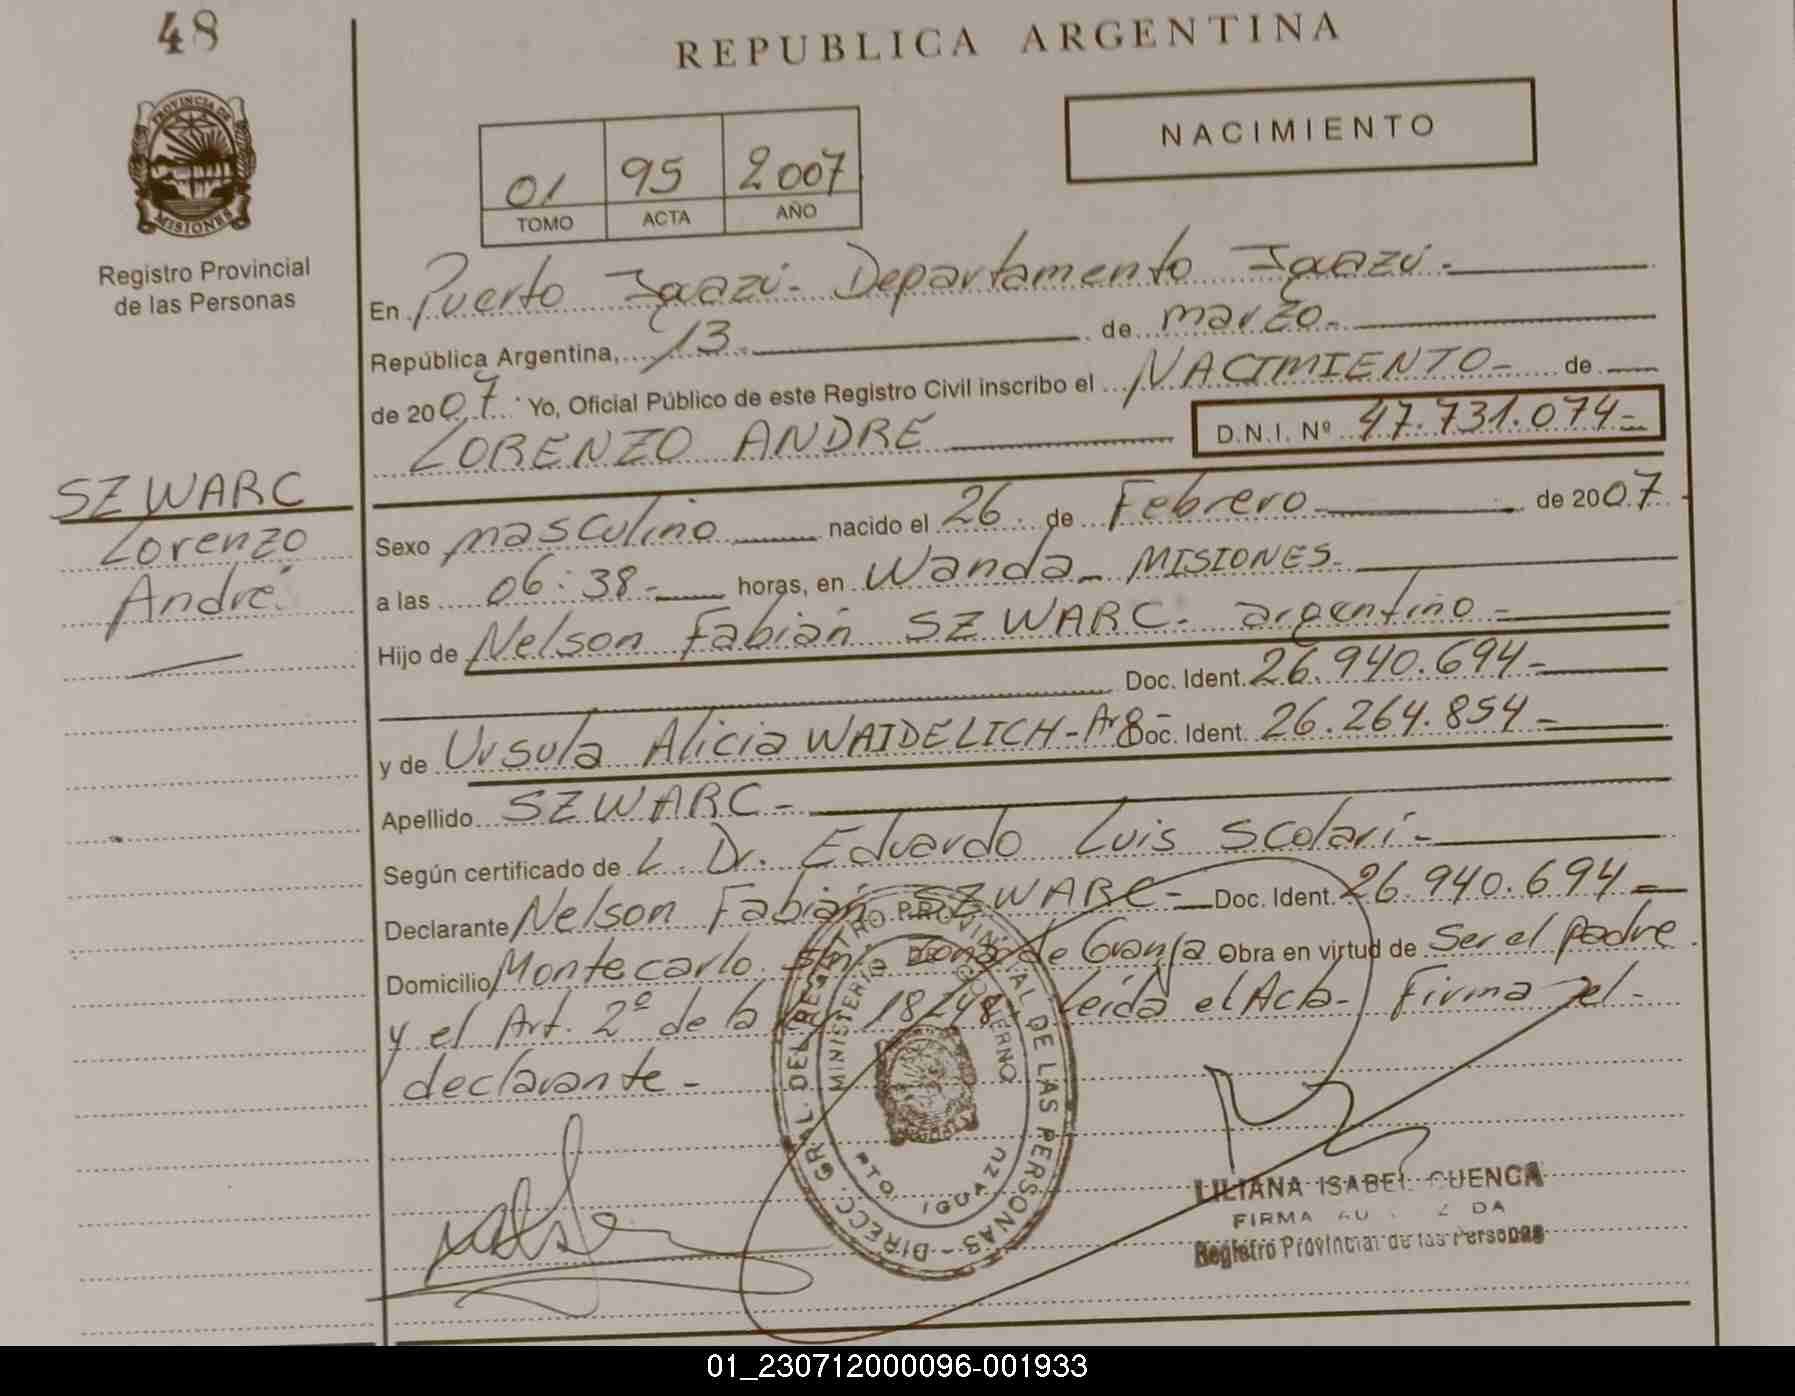 48
REPUBLICA ARGENTINA
NACIMIENTO
PROVINCIA DE MISIONES
Registro Provincial
de las Personas
01 95 2007
TOMO ACTA AÑO
En Puerto Iguazú- Departamento Iguazú-
República Argentina, 13 de marzo-
de 2007 Yo, Oficial Público de este Registro Civil inscribo el NACIMIENTO- de
LORENZO ANDRE D.N.I. Nº 47.731.074-
SZWARC
Lorenzo
André
Sexo masculino nacido el 26 de Febrero de 2007
a las 06:38- horas, en Wanda- MISIONES-
Hijo de Nelson Fabián SZWARC- argentino-
Doc. Ident. 26.940.694-
y de Ursula Alicia WAIDELICH-Arg- Doc. Ident. 26.264.854-
Apellido SZWARC-
Según certificado de L. Dr. Eduardo Luis Scolari-
Declarante Nelson Fabián SZWARC- Doc. Ident. 26.940.694-
Domicilio Montecarlo de Granja Obra en virtud de Ser el padre
y el Art. 2º de la 18248 Leída el Acta- Firma el-
declarante-
DIRECC. GRAL. DEL REGISTRO PROVINCIAL DE LAS PERSONAS
MINISTERIO GOBIERNO
PTO. IGUAZU
LILIANA ISABEL CUENCA
FIRMA
Registro Provincial de las Personas
01_230712000096-001933